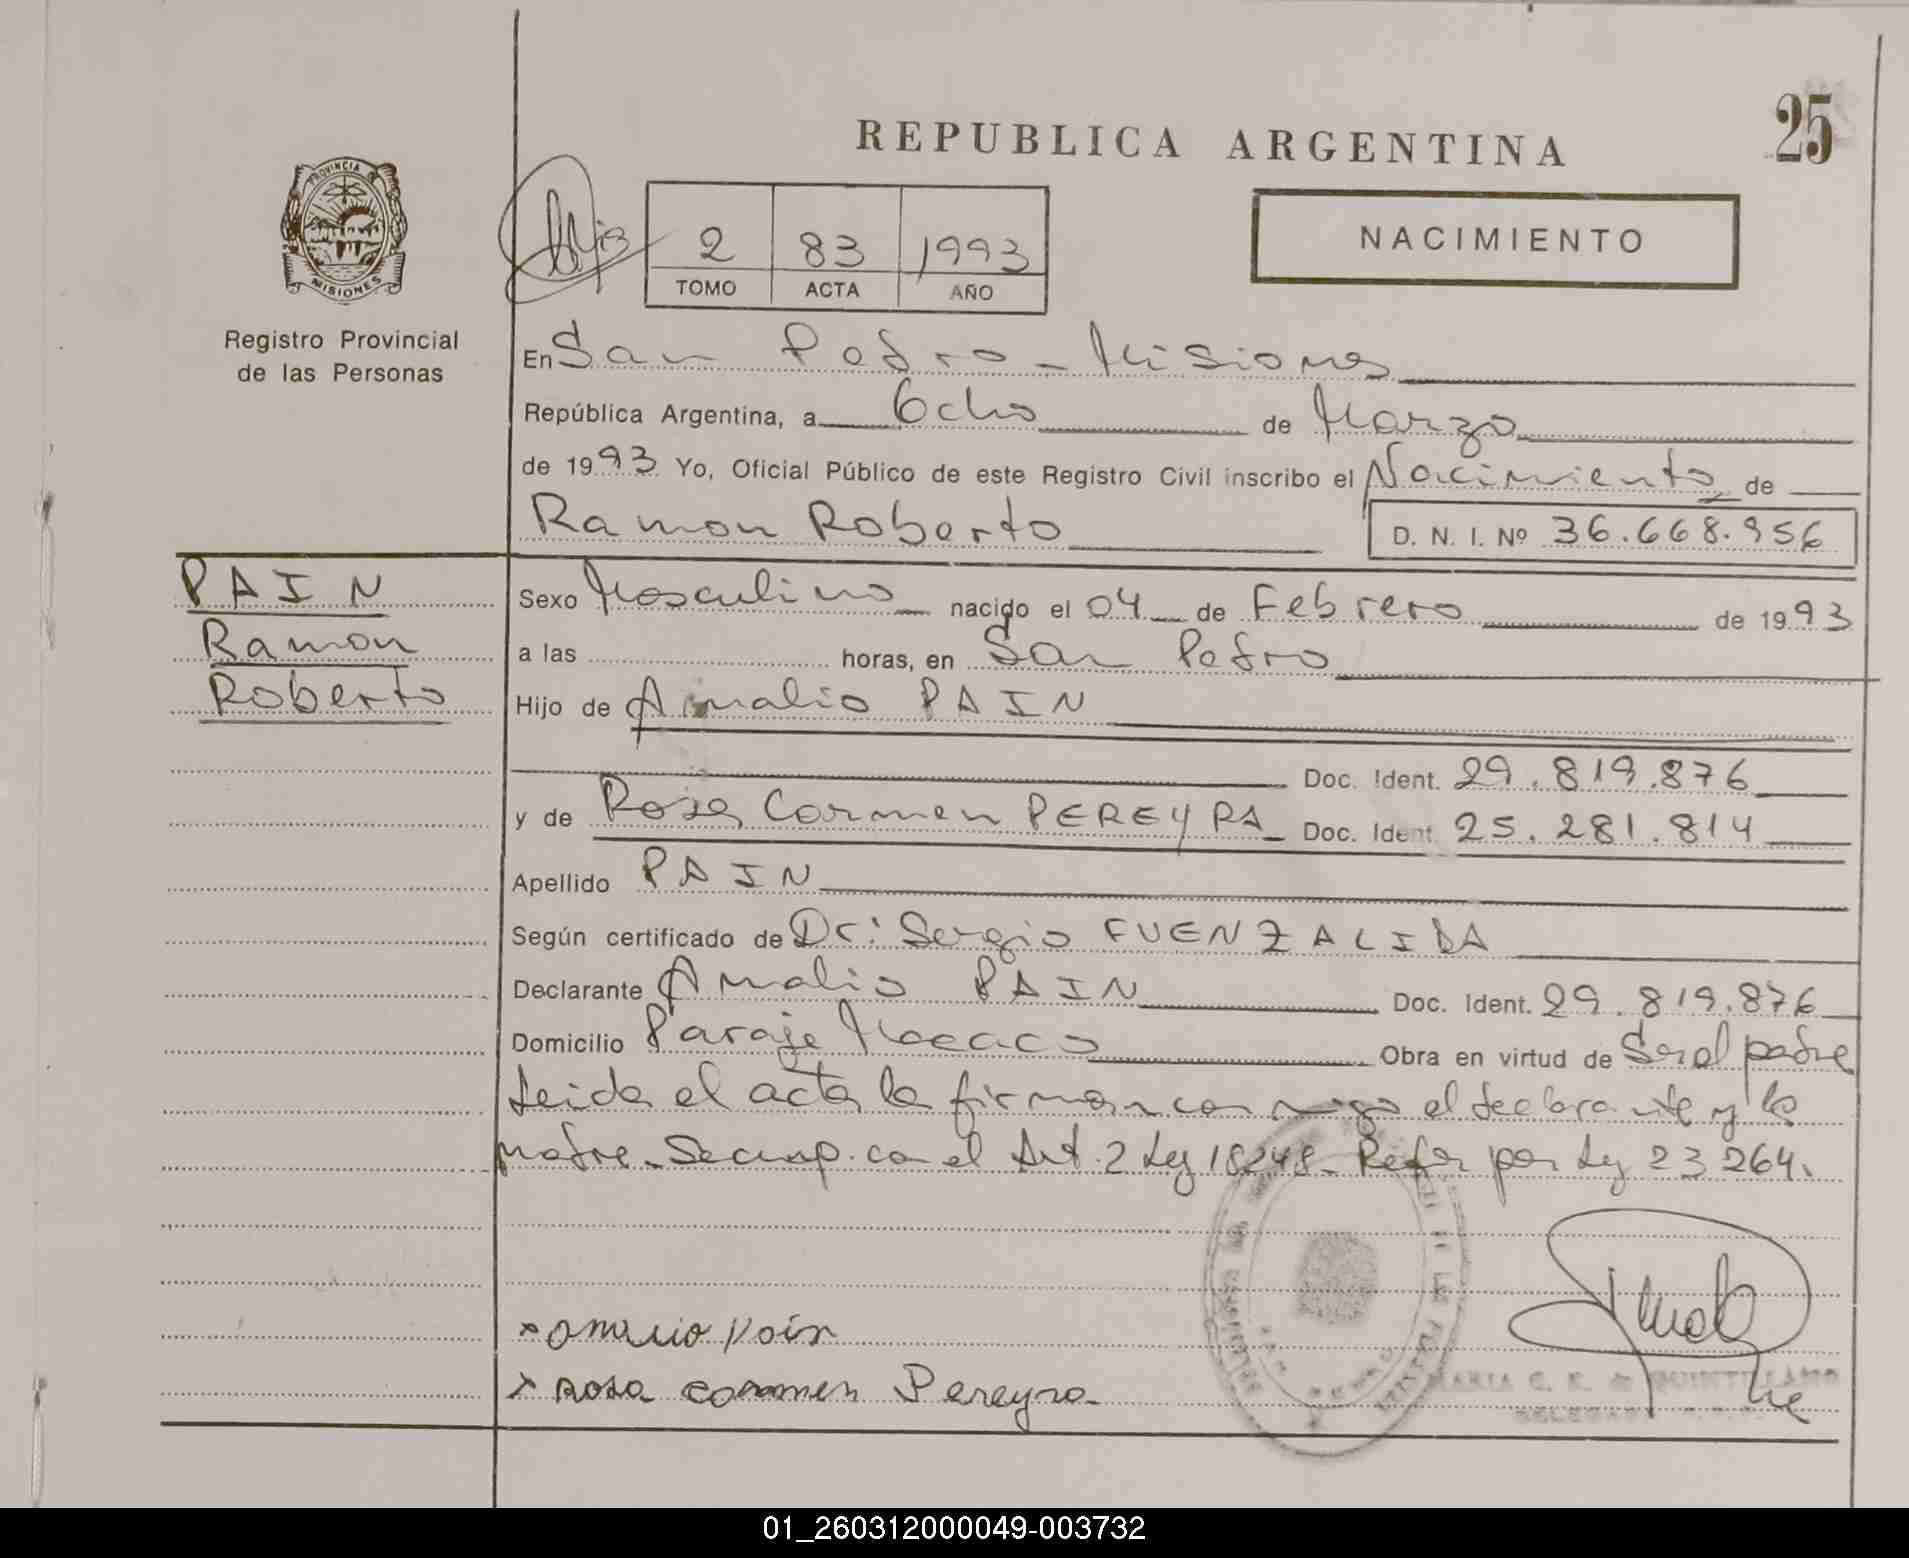 25
REPUBLICA ARGENTINA
PROVINCIA DE
MISIONES
Registro Provincial
de las Personas
2 83 1993
TOMO ACTA AÑO
NACIMIENTO
En San Pedro - Misiones
República Argentina, a Ocho de Marzo
de 1993 Yo, Oficial Público de este Registro Civil inscribo el Nacimiento de
Ramon Roberto D. N. I. Nº 36.668.956
PAIN
Ramon
Roberto
Sexo Masculino nacido el 04 de Febrero de 1993
a las horas, en San Pedro
Hijo de Amalio PAIN
Doc. Ident. 29.819.876
y de Rosa Carmen PEREYRA Doc. Ident. 25.281.814
Apellido PAIN
Según certificado de Dr: Sergio FUENZALIDA
Declarante Amalio PAIN Doc. Ident. 29.819.876
Domicilio Paraje Obra en virtud de Ser el padre
Leida el acta la firman conmigo el declarante y la
madre. Se cump. con el Art. 2 Ley 18248. Refor por Ley 23264.
x amalio Pain
x rosa carmen Pereyra
MARIA C. K. de QUINTILLANO
01_260312000049-003732